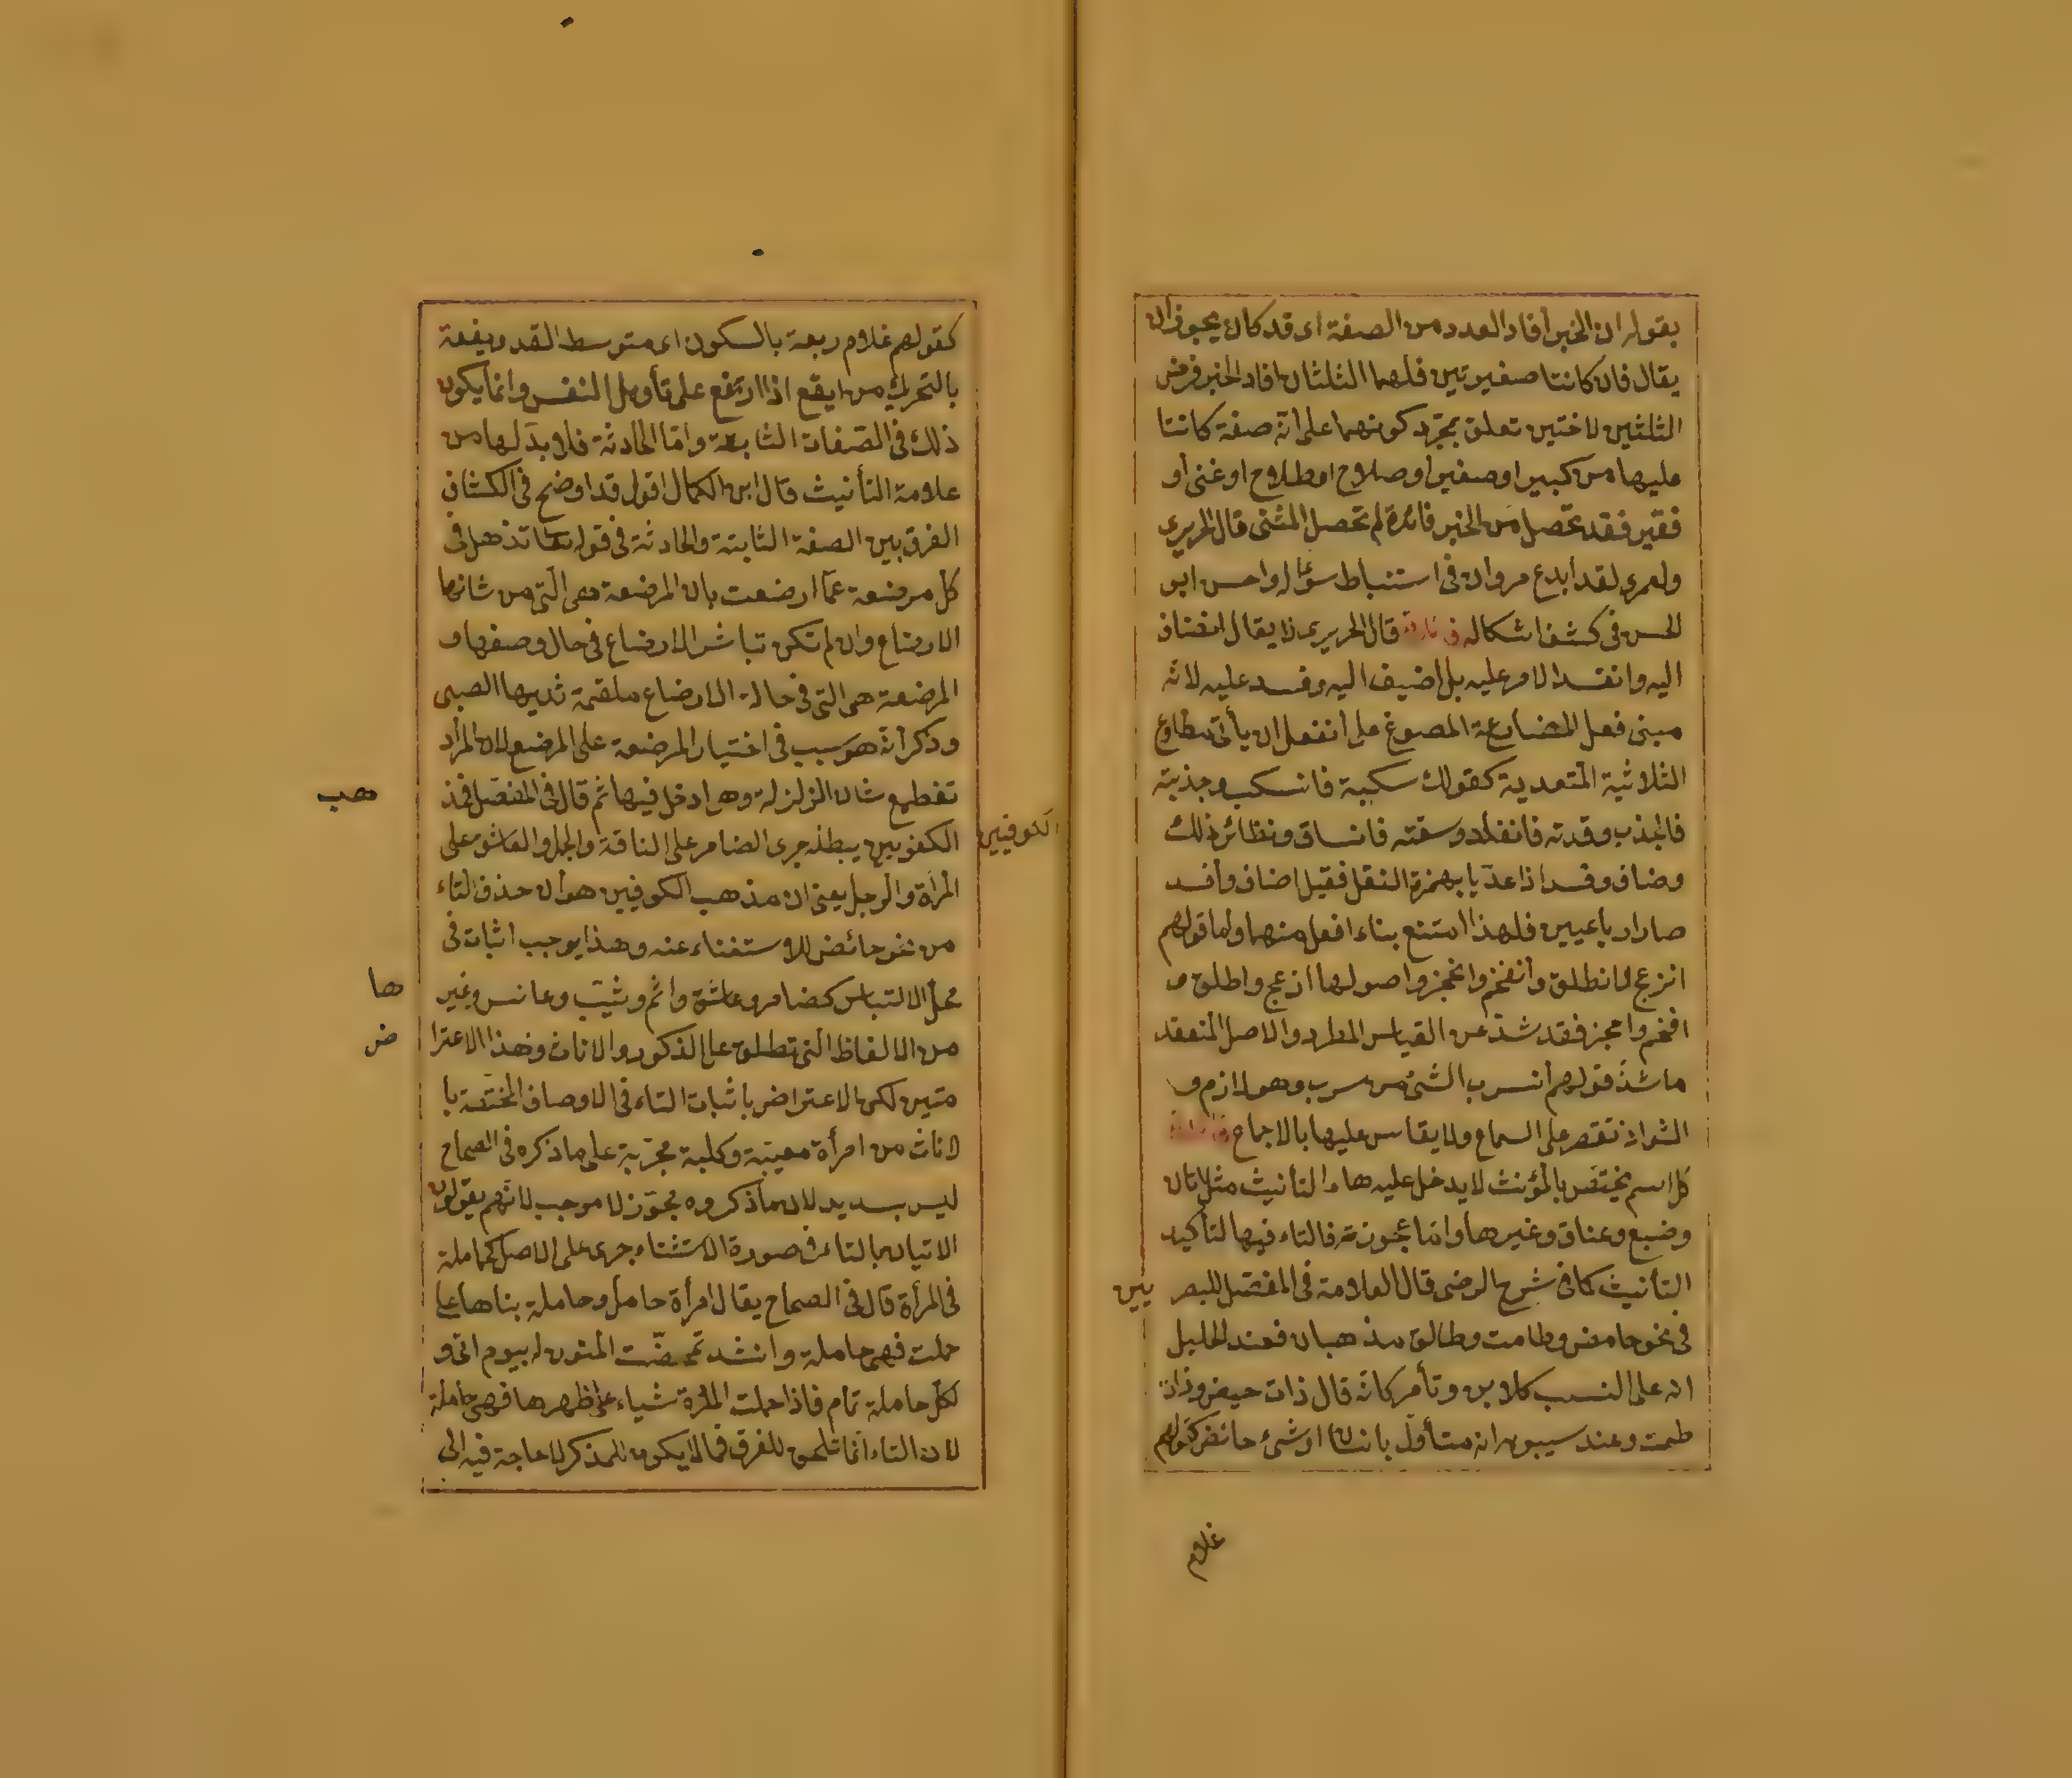 بقوله ان الخبر أفاد العدد من الصفة اى قد كان يجوز ان
يقال فان كانتا صغيرتين فلهما الثلثان افاد الخبر فرض
الثلثين للاختين تعلق بمجرّد كونهما على أنّه صفة كانتا
عليها من كبير او صغير أو صلاح او طلاح او غنى أو
فقير فقد تحصل من الخبر فائدة لم تحصل المثنى قال الحريرى
ولعمرى لقد ابدع مروان فى استنباط سؤاله واحسن ابو
الحسن فى كشف اشكاله قال الحريرى لا يقال انضاف
اليه وانفسد الامر عليه بل أضيف اليه وفسد عليه لانّه
مبنى فعل المضارعة المصوغ على أنفعل ان يأتى مطاوع
الثلاثية المتعدية كقولك سكبته فانسكب وجذبته
فانجذب وقدته فانقاد وسقته فانساق ونظائر ذلك
وضاف وفسد اذا عدّيا بهمزة النقل فقيل اضاف وأفسد
صارا رباعيين فلهذا امتنع بناء افعل منهما ولما قولهم
انزعج انطلق وأنفخم وانحجز واصولها ازعج واطلق و
افخم واحجز فقد شذّ عن القياس المطرد والاصل المنعقد
ما شذّ قولهم أنسرب الشئ من سرب وهو لازم و
الشواذ تقصر على السماع ولا يقاس عليها بالاجماع
كل اسم يختصّ بالمؤنث لا يدخل عليه هاء التأنيث مثل اتان
وضبع وعناق وغيرها وامّا عجوزة فالتاء فيها لتأكيد
التأنيث كما فى شرح الرضى قال العلامة فى المفصّل للبصر
يين
فى نحو حامض وطامث وطالق مذهبان فعند الخليل
انه على النسب كلابن وتأمر كانّه قال ذات حيض وذات
طمث وعند سيبويه انه متأوّل بانسان او شئ حائض كقولهم
غلام
كقولهم غلام ربعة بالسكون اى متوسط القد ويفعة
بالتحريك من ايفع اذا ارتفع على تأويل النفس وانما يكون
ذلك فى الصّفات الثابتة وامّا الحادثة فلا بدّ لها من
علامة التأنيث قال ابن الكمال اقول قد اوضح فى الكشاف
الفرق بين الصفة الثابتة والحادثة فى قوله تعا تذهل فى
كلّ مرضعة عمّا ارضعت بان المرضعة هى الّتى من شانها
الارضاع وان لم تكن تباشر الارضاع فى حال وصفها و
المرضعة هى التى فى حالة الارضاع ملقمة ثديها الصبى
وذكر أنّه هو سبب فى اختيار المرضعة على المرضع لان المراد
تفظيع شان الزلزلة وهو ادخل فيها ثم قال فى المفصّل فمذ
هب
الكفويين يبطله جرى الضامر على الناقة والجمل والعاشق على
الكوفيين
المرأة والرجل يعنى ان مذهب الكوفيين هو أن حذف التاء
من نحو حائض للاستغناء عنه وهذا يوجب اثبات فى
محلّ الالتباس كضامر وعاشق واثم وثيّب وعانس وغير
ها
من الالفاظ التى تطلق على الذكور والاناث وهذا الاعترا
ض
متين لكن الاعتراض باثبات التاء فى الاوصاف المختصة با
لاناث من امرأة مصيبة وكلبة مجرية على ما ذكره فى الصحاح
ليس بسديد لان ما ذكروه مجوّز لا موجب لانّهم يقولون
الاتيان بالتاء فى صورة الاستثناء جرى على الاصل كحاملة
فى المرأة قال فى الصحاح يقال امرأة حامل وحاملة بناها على
حملت فهى حاملة وانشد تمخضت المنون له بيوم اتى و
لكلّ حاملة تمام فاذا حملت المرأة شياء على ظهرها فهى حاملة
لان التاء انّما تلحق للفرق فما لا يكون للمذكر لا حاجة فيه الى